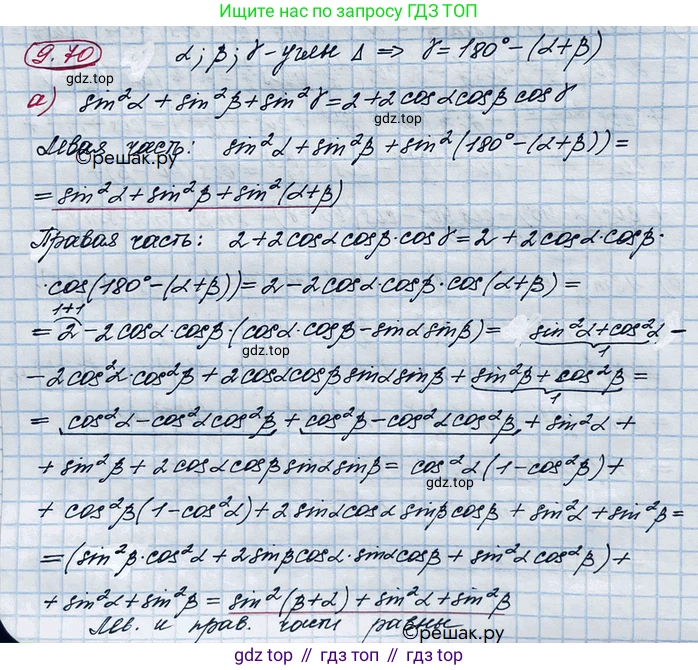 Подпишись по запросу ГДЗ ТОП
9.70 α; β; γ - углы Δ ⇒ γ = 180° - (α+β)
гдз top
а) sin²α + sin²β + sin²γ = 2 + 2 cosα cosβ cosγ
гдз top
Левая часть: sin²α + sin²β + sin²(180° - (α+β)) =
©решак.ру
= sin²α + sin²β + sin²(α+β)
гдз top
Правая часть: 2 + 2cosα cosβ · cosγ = 2 + 2cosα · cosβ ·
©решак.ру
· cos(180° - (α+β)) = 2 - 2cosα · cosβ · cos(α+β) =
1+1
= 2 - 2cosα · cosβ · (cosα · cosβ - sinα sinβ) = sin²α + cos²α -
гдз top
1
- 2cos²α · cos²β + 2cosα cosβ sinα sinβ + sin²β + cos²β =
1
= cos²α - cos²α cos²β + cos²β - cos²α cos²β + sin²α +
+ sin²β + 2cosα cosβ sinα sinβ = cos²α (1 - cos²β) +
гдз top
+ cos²β (1 - cos²α) + 2 sinα cosα sinβ cosβ + sin²α + sin²β =
= (sin²β · cos²α + 2sinβ cosα · sinα cosβ + sin²α cos²β) +
+ sin²α + sin²β = sin²(β+α) + sin²α + sin²β
гдз top
Лев. и прав. части равны
©решак.ру
гдз top // гдз top // гдз top // гдз top // гдз top